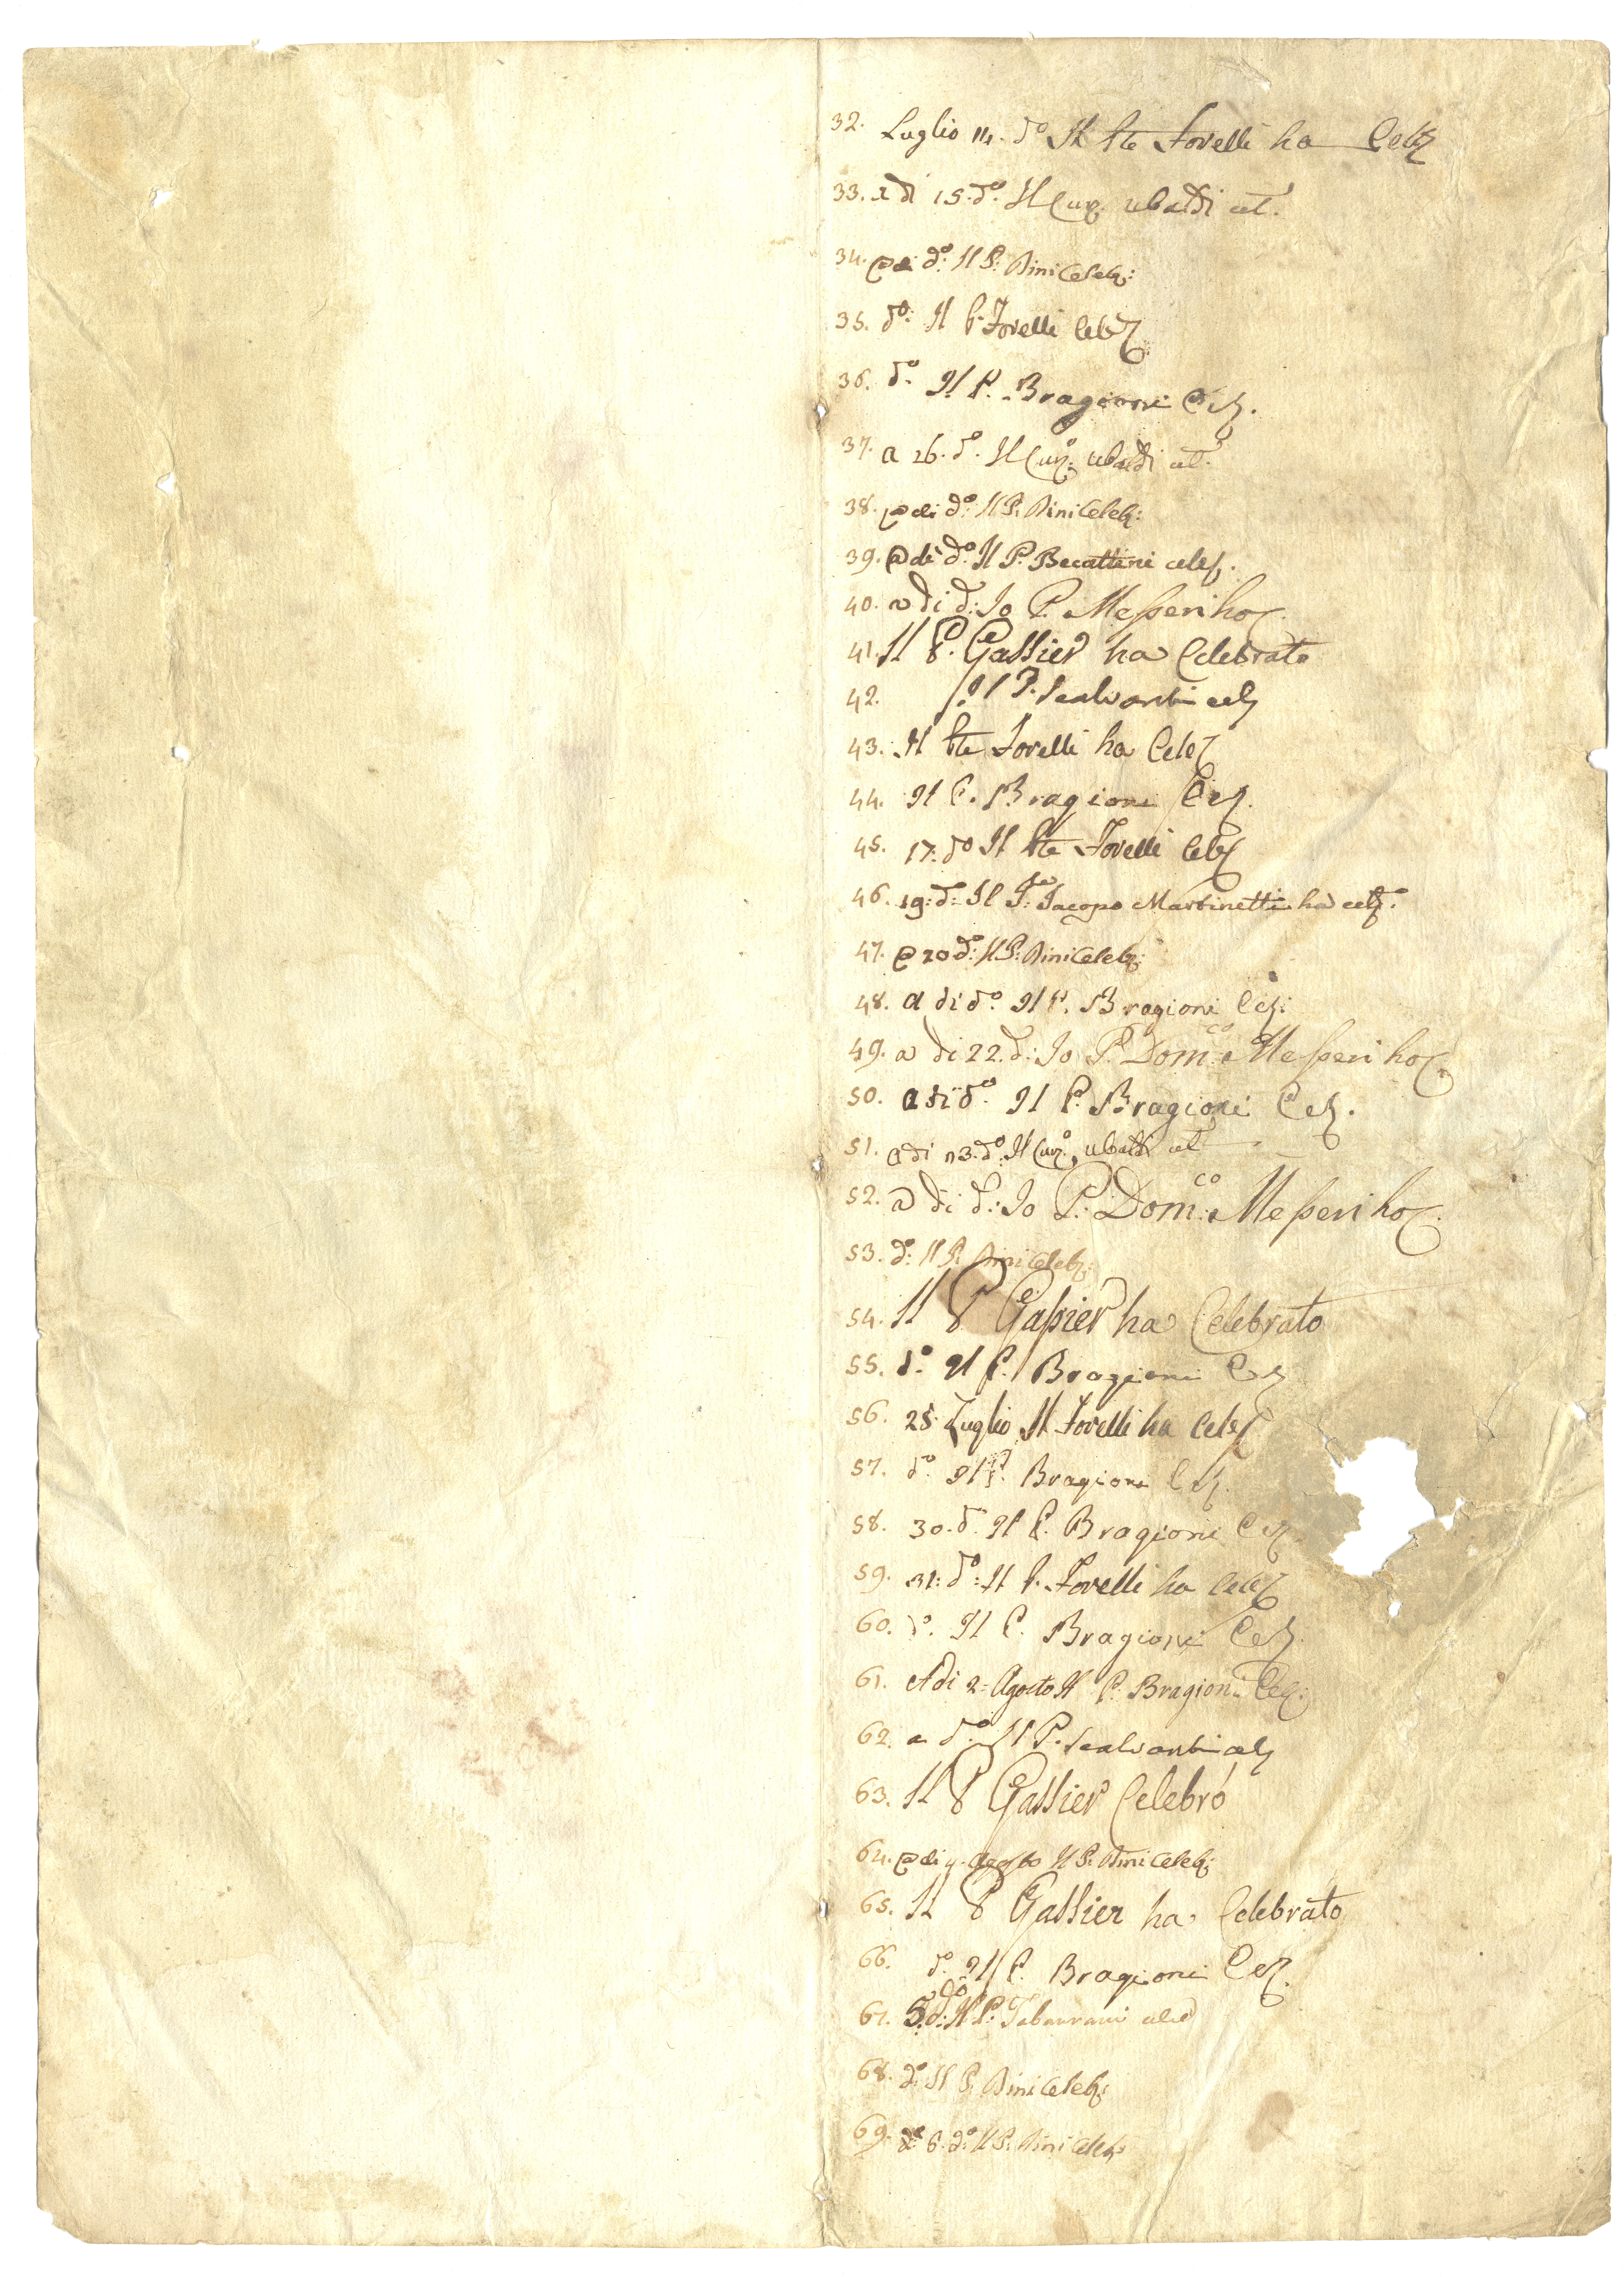 32. Luglio 14. do Il Pte Forelli ha Celeb
33. a di 15. do. Il Cur. Ubaldi cel.
34. a di do: Il P: Dini Celeb:
35. do: Il P. Forelli Celeb
36. do. Il P. Bragioni Cel.
37. a 26. do. Il Curo: Ubaldi cel.
38. a di do: Il P: Dini Celeb:
39. a di do. Il P. Becattini celeb.
40. a di d: Io P. Messeri ho C.
41. Il P. Gassier ha Celebrato
42. Il P. Scalvanti cel
43. Il Pte Forelli ha Celeb
44. Il P. Bragioni Cel.
45. 17. do Il Pte Forelli Celeb
46. 19: do: Il Jacopo Martinetti ha celeb.
47. a 20 do: Il P: Dini Celeb:
48. a di do. Il P. Bragioni Cel:
49. a di 22. d: Io P. Domco: Messeri ho C.
50. a di do. Il P. Bragioni Cel.
51. a di 23. do: Il Curo. Ubaldi cel
52. a di d: Io P: Domco: Messeri ho C.
53. do: Il P: Dini Celeb:
54. Il P Gassier ha Celebrato
55. do. Il P. Bragioni Cel
56. 28. Luglio Il Forelli ha Celeb
57. do. Il P. Bragioni Cel.
58. 30. d. Il P. Bragioni Cel
59. 31: do: Il P. Forelli ha Celeb
60. do. Il P. Bragioni Cel.
61. Adi 2= Agosto Il P. Bragioni Cel:
62. a do. Il P. Scalvanti cel
63. Il P Gassier Celebrò
64. a di 4. Agosto Il P: Dini Celeb:
65. Il P Gassier ha Celebrato
66. do. Il P. Bragioni Cel.
67. 5. do: Il P: Tabarrani
68. do: Il P: Dini Celeb:
69. 6. do: Il P: Dini Celeb